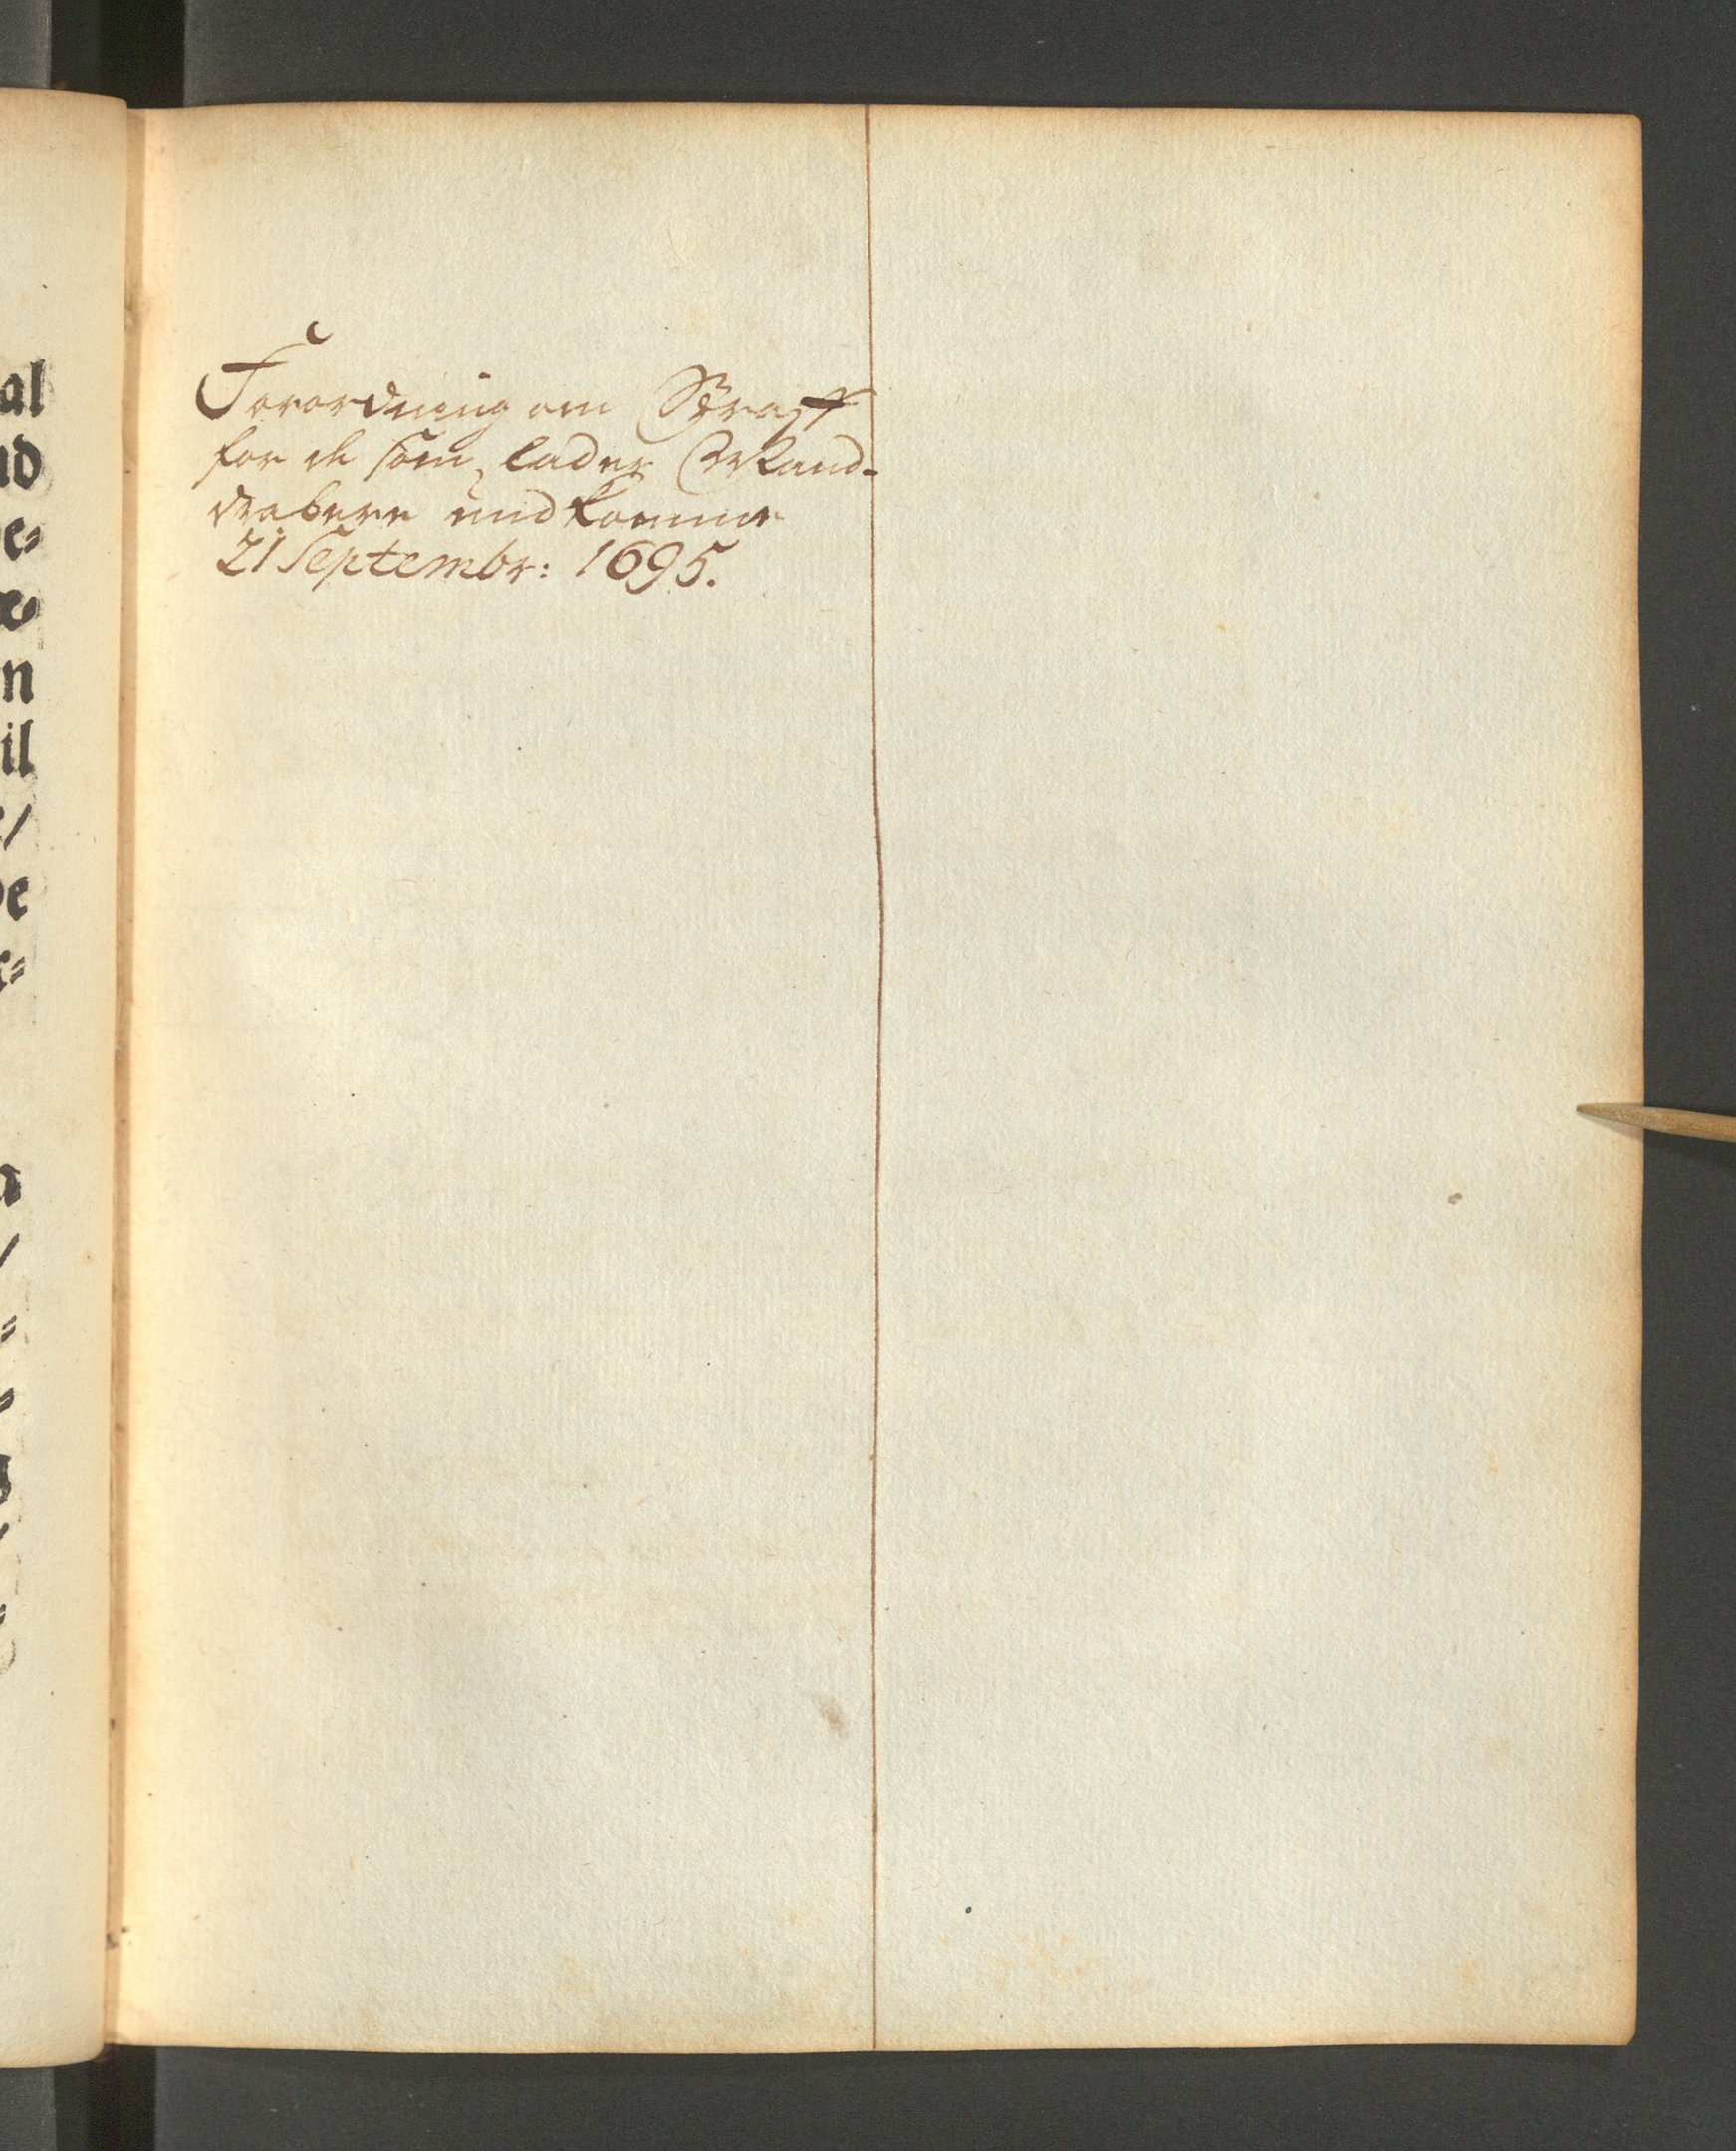 al
nd
e=
n
il
de
Forordning om Straff
for de som lader Mand-
drabere undkomme
21 Septembr: 1695.